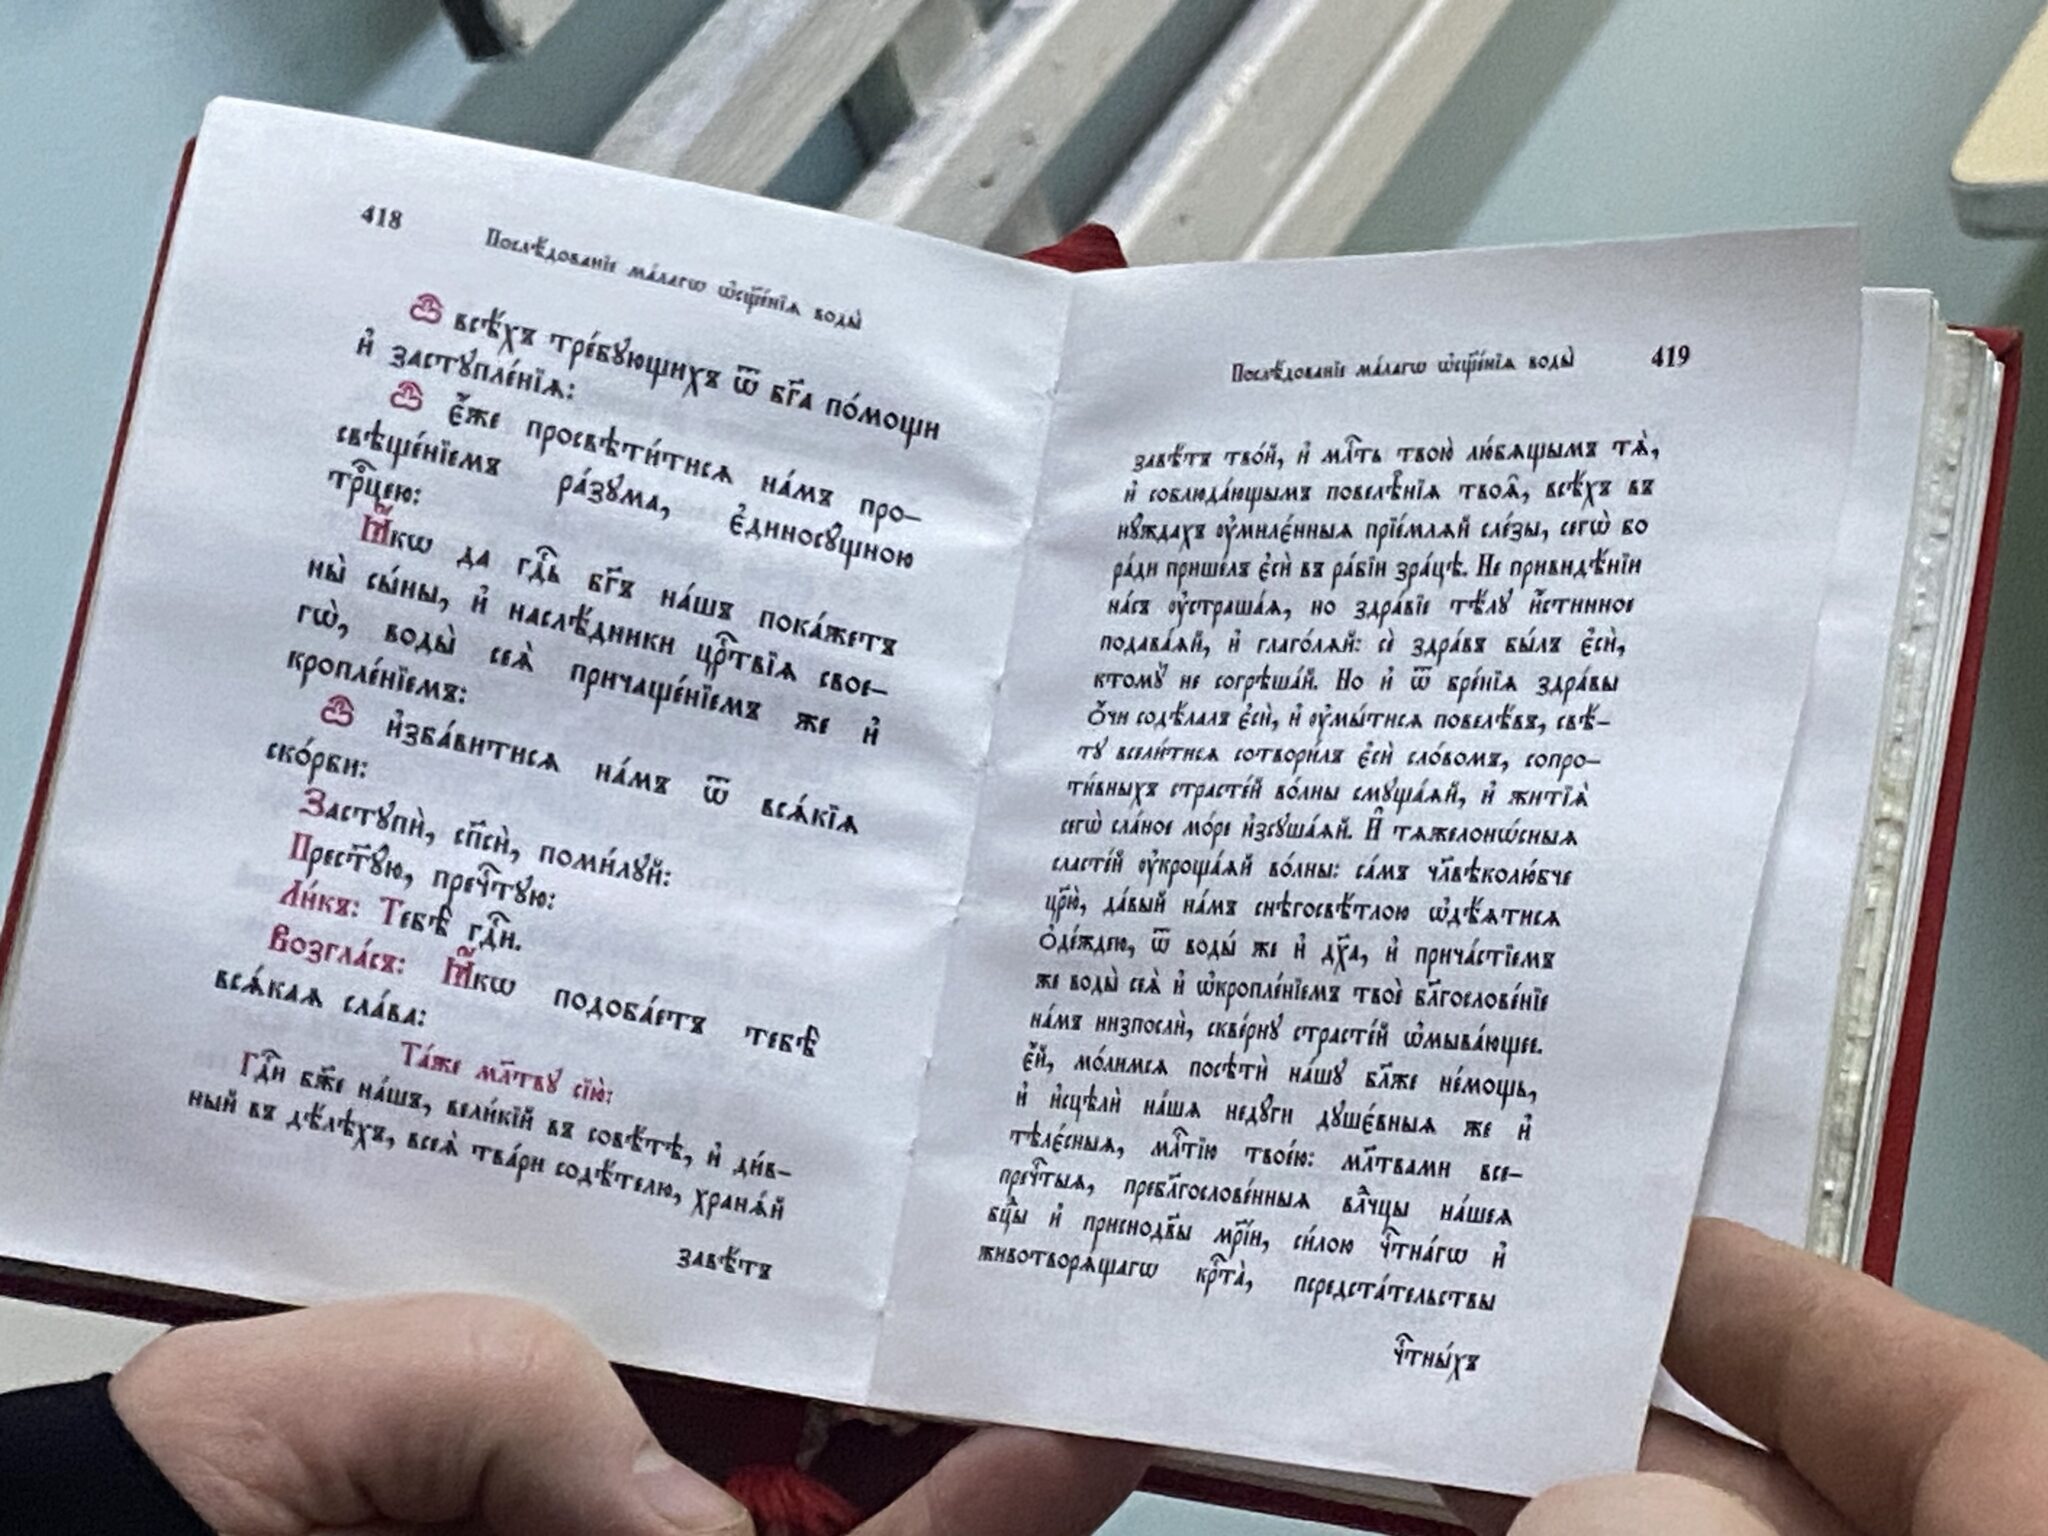 418
Послѣ́дованїе ма́лагѡ ѡ҆сщ҃е́нїѧ воды̀
Ѽ всѣ́хъ тре́бꙋющихъ ѿ бг҃а по́мощи
и҆ застꙋпле́нїѧ:
Ѽ є҆́же просвѣти́тисѧ на́мъ про-
свѣще́нїемъ ра́зꙋма, є҆диносꙋ́щною
трⷪ҇цею:
Ꙗ҆́кѡ да гдⷭ҇ь бг҃ъ на́шъ пока́жетъ
ны̀ сы́ны, и҆ наслѣ́дники црⷭ҇твїѧ свое-
гѡ̀, воды̀ сеѧ̀ причаще́нїемъ же и҆
кропле́нїемъ:
Ѽ и҆зба́витисѧ на́мъ ѿ всѧ́кїѧ
ско́рби:
Застꙋпѝ, сп҃сѝ, поми́лꙋй:
Прест҃ꙋ́ю, пречⷭ҇тꙋю:
Ли́къ: Тебѣ̀ гдⷭ҇и.
Возгла́съ: Ꙗ҆́кѡ подоба́етъ тебѣ̀
всѧ́каѧ сла́ва:
Та́же мл҃твꙋ сїю̀:
Гдⷭ҇и бж҃е на́шъ, вели́кїй въ совѣ́тѣ, и҆ ди́в-
ный въ дѣ́лѣхъ, всеѧ̀ тва́ри содѣ́телю, хранѧ́й
завѣ́тъ
Послѣ́дованїе ма́лагѡ ѡ҆сщ҃е́нїѧ воды̀
419
завѣ́тъ тво́й, и҆ млⷭ҇ть твою̀ лю́бѧщымъ тѧ̀,
и҆ соблюда́ющымъ повелѣ̑нїѧ твоѧ̑, всѣ́хъ въ
нꙋ́ждахъ ᲂу҆миле́нныѧ прїе́млѧй сле́зы, сегѡ̀ бо
ра́ди прише́лъ є҆сѝ въ ра́бїи зра́цѣ. Не привидѣ́нїи
на́съ ᲂу҆страша́ѧ, но здра́вїе тѣ́лꙋ и҆́стинное
подава́ѧй, и҆ глаго́лѧй: сѐ здра́въ бы́лъ є҆сѝ,
ктомꙋ̀ не согрѣша́й. Но и҆ ѿ бре́нїѧ здра́вы
ѻ҆́чи содѣ́лалъ є҆сѝ, и҆ ᲂу҆мы́тисѧ повелѣ́въ, свѣ́-
тꙋ всели́тисѧ сотвори́лъ є҆сѝ сло́вомъ, сопро-
ти́вныхъ страсте́й во́лны смꙋща́ѧй, и҆ житїѧ̀
сегѡ̀ сла́ное мо́ре и҆зсꙋша́ѧй. И҆ тѧжелонѡ́сныѧ
сласте́й ᲂу҆кроща́ѧй во́лны: са́мъ чл҃вѣколю́бче
цр҃ю̀, да́вый на́мъ снѣгосвѣ́тлою ѡ҆дѣ́ѧтисѧ
ѻ҆де́ждею, ѿ воды́ же и҆ дх҃а, и҆ прича́стїемъ
же воды̀ сеѧ̀ и҆ ѡ҆кропле́нїемъ твоѐ блгⷭ҇ослове́нїе
на́мъ низпослѝ, скве́рнꙋ страсте́й ѡ҆мыва́ющее.
є҆́й, мо́лимсѧ посѣтѝ на́шꙋ бл҃же не́мощь,
и҆ и҆сцѣлѝ на́шѧ недꙋ́ги дꙋшє́вныѧ же и҆
тѣлє́сныѧ, млⷭ҇тїю твое́ю: мл҃твами все-
пречⷭ҇тыѧ, пребл҃гослове́нныѧ влⷣчцы на́шеѧ
бцⷣы и҆ приснодв҃ы мр҃і́и, си́лою чⷭ҇тна́гѡ и҆
животворѧ́щагѡ крⷭ҇та̀, передста́тельствы
чⷭ҇тны́хъ